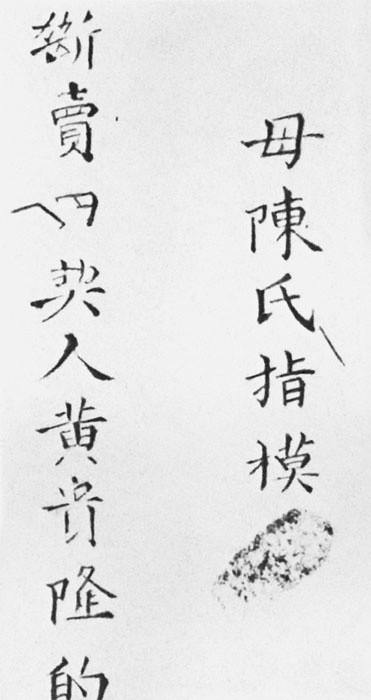 母陳氏指模
斷賣契人黃貴隆的